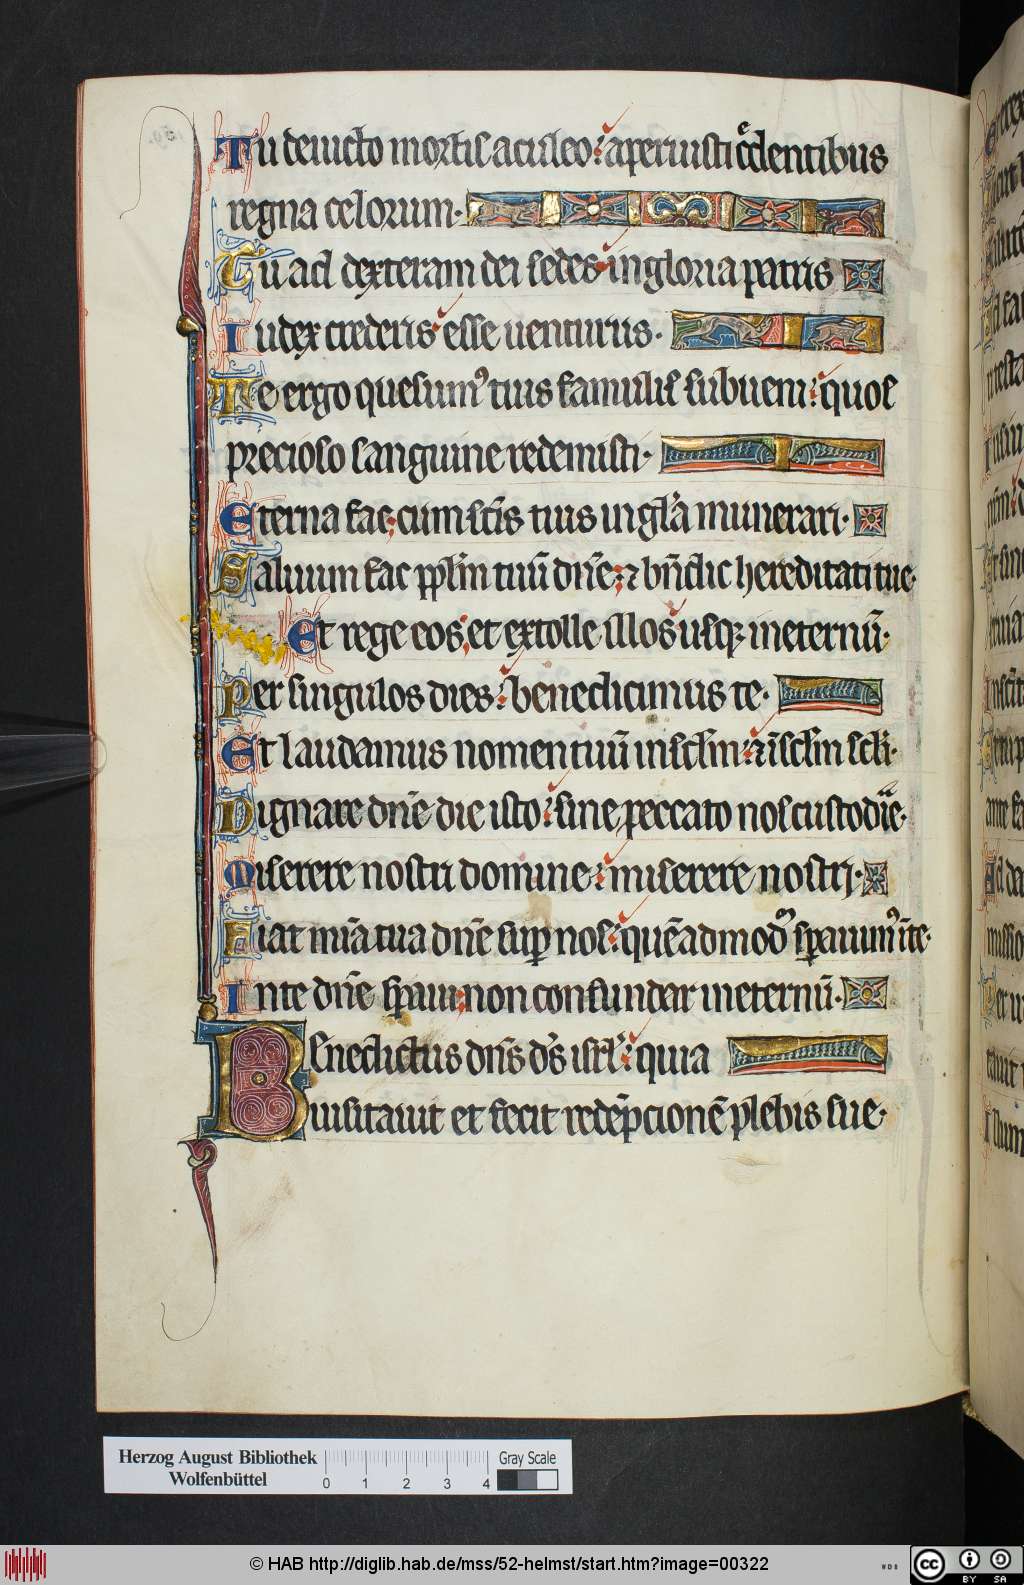 Tu deuicto mortis aculeo: aperuisti c̄dentibus
regna celorum.
Tu ad dexteram dei sedes in gloria patris
Iudex crederis esse uenturus.
Te ergo quesumꝰ tuis famulis subueni: quos
precioso sanguine redemisti.
Eterna fac: cum sc̄is tuis in gl̄a munerari.
Saluum fac ppl̄m tuū dn̄e: ⁊ bn̄dic hereditati tue.
Et rege eos: et extolle illos usqꝫ in eternū.
Per singulos dies: benedicimus te.
Et laudamus nomen tuū in sc̄lm: ⁊ ī sc̄lm sc̄li.
Dignare dn̄e die isto: sine peccato nos custodīe.
Miserere nostri domine: miserere nostri.
Fiat mīa tua dn̄e sup nos: quēadmodꝰ sp̄auimꝰ ī te.
In te dn̄e sp̄aui: non confundar in eternū.
Benedictus dn̄s dꝰs isrl̄: quia
uisitauit et fecit redēpcionē plebis sue.
Herzog August Bibliothek
Wolfenbüttel
0 1 2 3 4
Gray Scale
© HAB http://diglib.hab.de/mss/52-helmst/start.htm?image=00322
cc BY SA